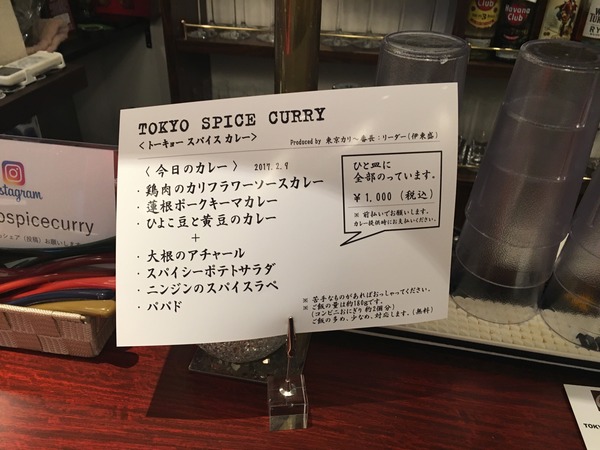 TOKYO SPICE CURRY
<トーキョー スパイス カレー>
Produced by 東京カリ〜番長:リーダー(伊東盛)
<今日のカレー> 2017.2.9
・鶏肉のカリフラワーソースカレー
・蓮根ポークキーマカレー
・ひよこ豆と黄豆のカレー
+
・大根のアチャール
・スパイシーポテトサラダ
・ニンジンのスパイスラペ
・パパド
ひと皿に
全部のっています。
¥1,000(税込)
※ 前払いでお願いします。
カレー提供時にお支払いください。
※ 苦手なものがあればおっしゃってください。
※ ご飯の量は約180gです。
(コンビニおにぎり 約2個分)
ご飯の多め、少なめ、対応します。(無料)
Instagram
ospicecurry
シェア(投稿)お願いします
Havana
Club
Havana
Club
TOKY